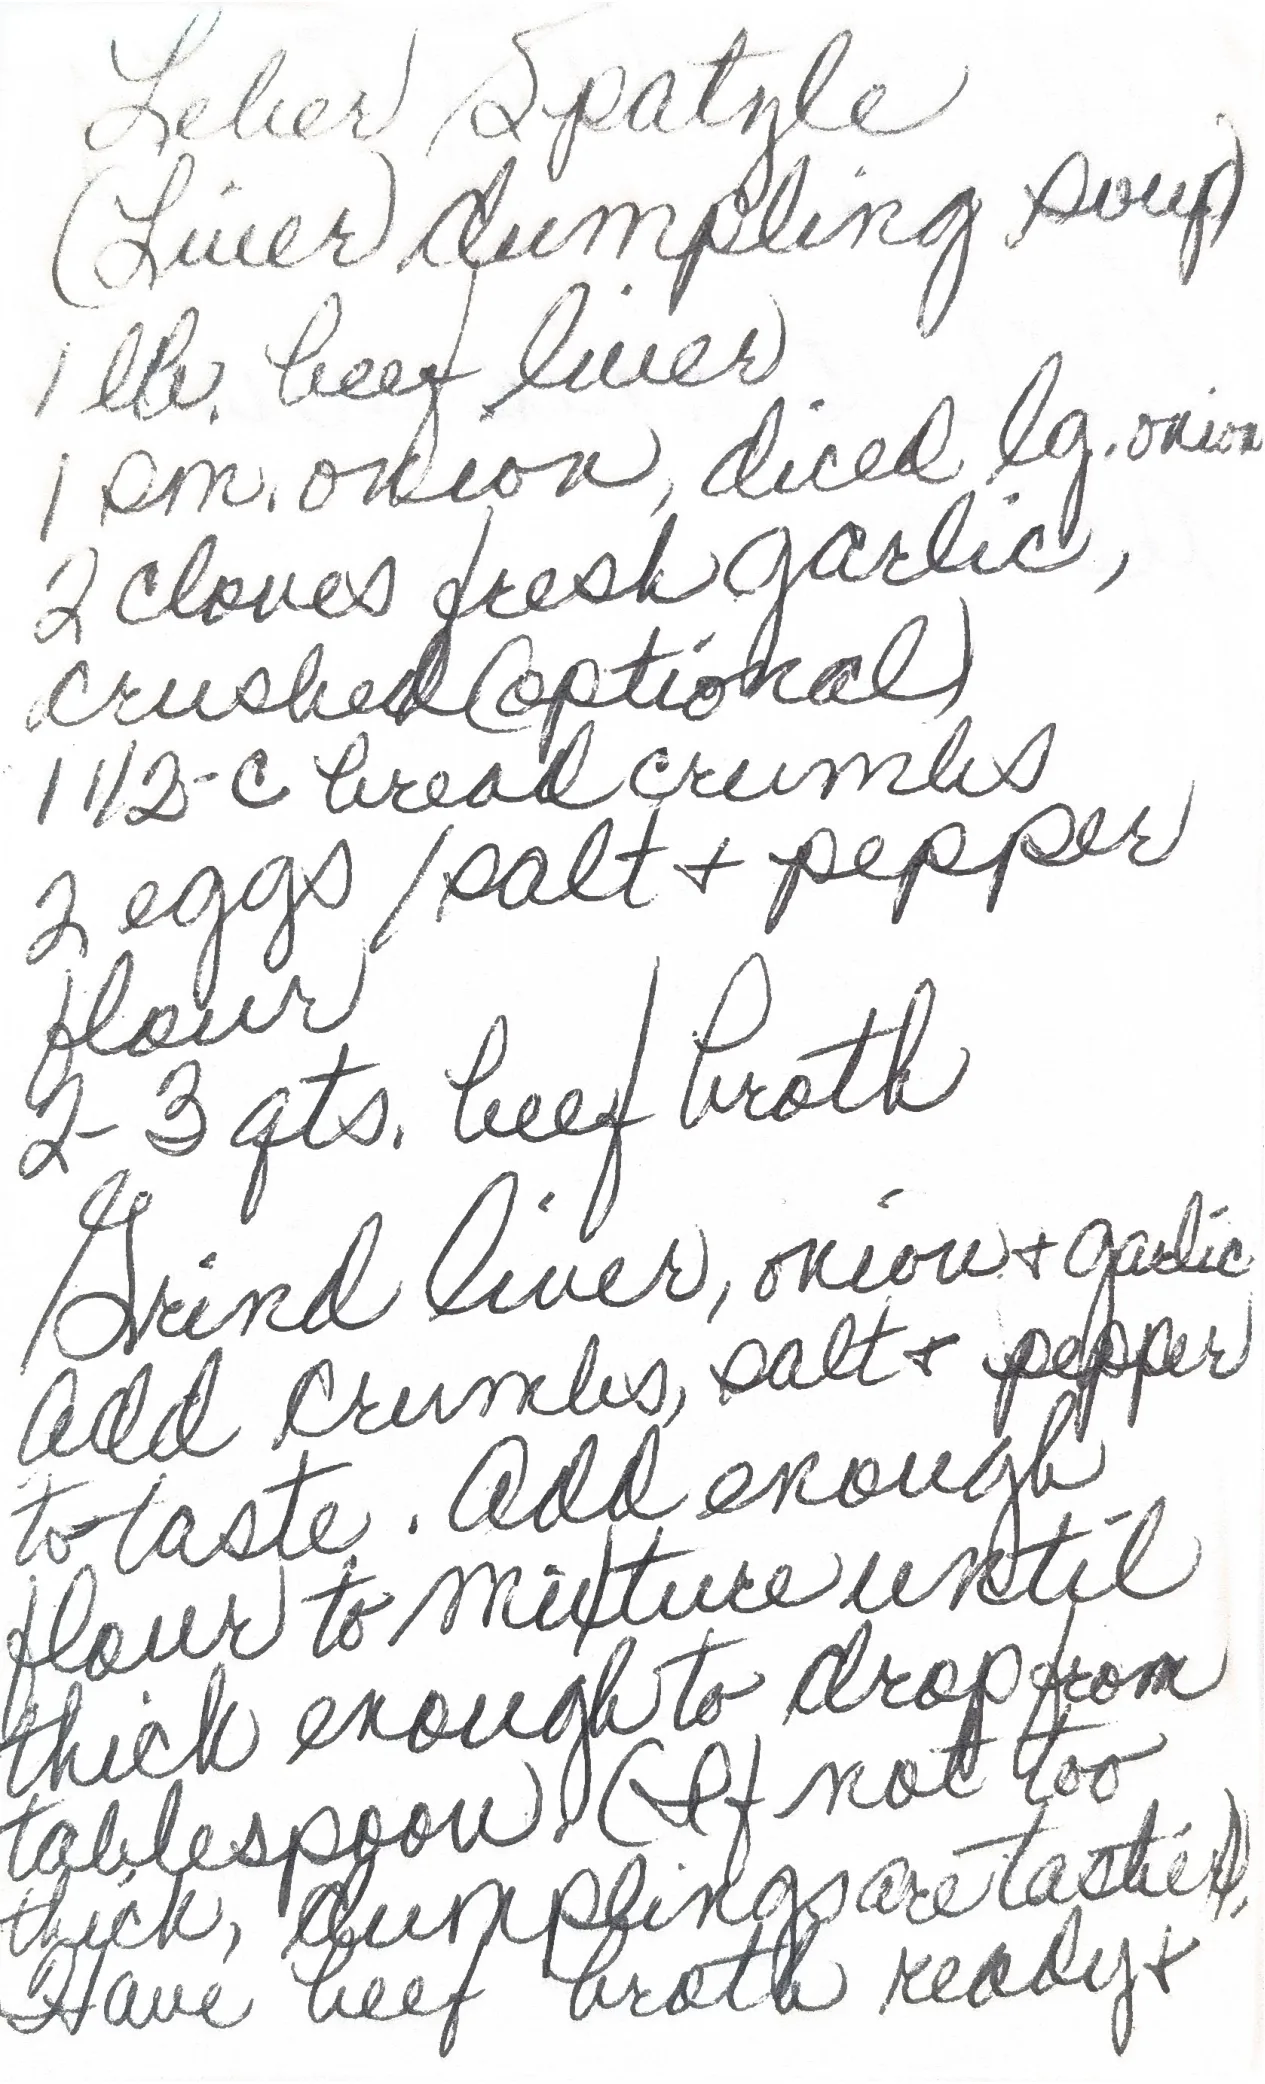 Leber Spatzle
(Liver dumpling soup)
1 lb. beef liver
1 sm. onion, diced lg. onion
2 cloves fresh garlic,
crushed (optional)
1 1/2-c bread crumbs
2 eggs / salt + pepper
flour
2-3 qts. beef broth
Grind liver, onion + garlic
add crumbs, salt + pepper
to taste. Add enough
flour to mixture until
thick enough to drop from
tablespoon. (If not too
thick, dumplings are tastier).
Have beef broth ready +